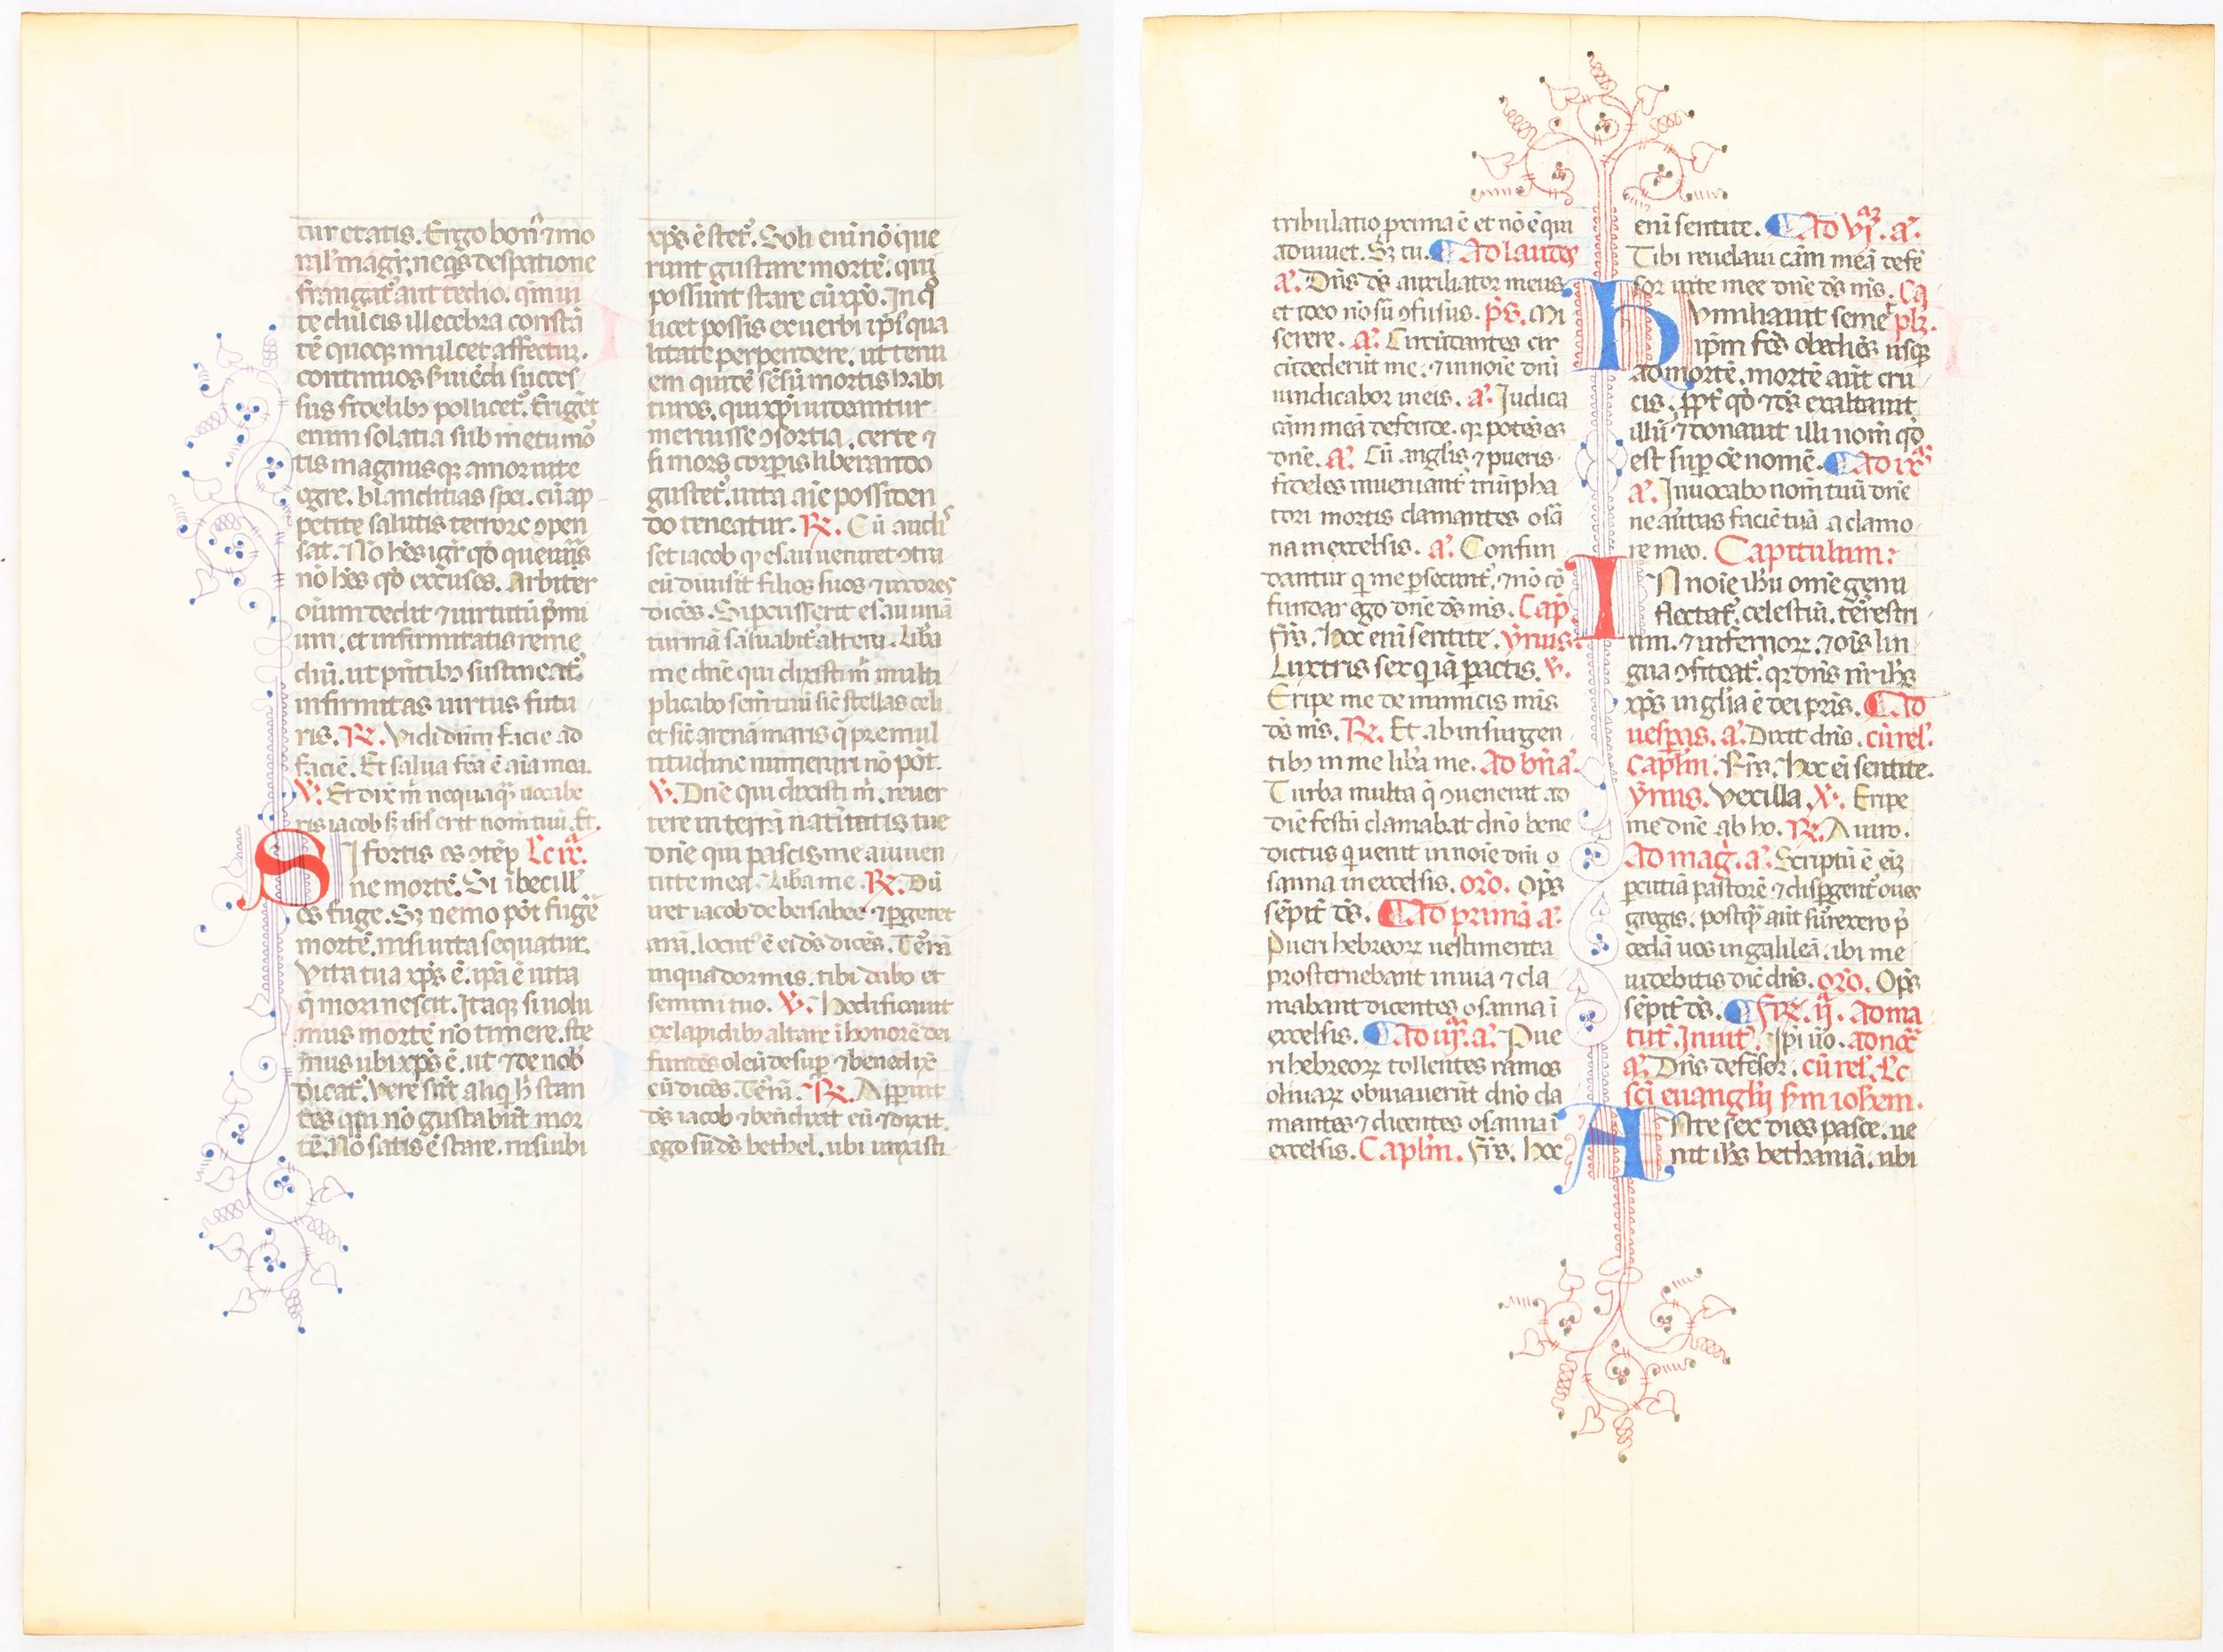 tur etatis. Ergo bon⁹ ⁊ mo
frangat᷑ aut tedio. qm̄ ui
te dulcis illecebra constā
tē quoq mulcet affectū.
continuos succes
sus fidelibꝫ pollicet᷑. Eriget
enim solatia sub metu mo
tis magnusq amor uite
egre. blanditias spei. cū ap
petite salutis terrore ɔpen
sat. No hēs igr̄ qd̄ queraris
nō hēs qd̄ excuses. Arbiter
oīum dedit ⁊ uirtutū p̄mi
um. et infirmitatis reme
diū. ut sustineat᷑
infirmitas uirtus futu
ris. ℟. Vidi dūm facie ad
faciē. Et salua fcā ē aīa mea.
℣. Et dix̄ m̄ nequaq̄ uocabe
ris iacob ist̄l erit nom̄ tuū. Et.
SI fortis es ɔtēp Lc̄
ne mortē. Si ībecill
es fuge. Sꝫ nemo pōt fuge
mortē. nisi uita sequatur.
Vita tua xp̄s ē. ip̄a ē uita
q̄ mori nescit. Itaq si uolu
mus mortē nō timere. ste
mus ubi xp̄s ē. ut ⁊ de nob̄
dicat᷑. Vere sūt aliq̄ h̄ stan
tes qui nō gustabūt mor
tē. Nō satis ē stare. nisi ubi
xp̄s ē stet᷑. Soli eni nō que
runt gustare mortē. qui
possunt stare cū xp̄o. In q̄
licet possis ex uerbi ip̄i qua
litate perpendere. ut tenu
em quidē sēsū mortis habi
turos. qui xp̄i uideantur
meruisse ɔsortia. certe ⁊
si mors corp̱is liberando
gustet᷑. uita aīe possiden
do teneatur. ℟. Cū audi
set iacob qꝫ esau ueniret ɔtra
eū diuisit filios suos ⁊ uxores
dicēs. Si percusserit esau unā
turmā saluabit᷑ altera. Liba
me dnē qui dixisti m̄ multi
plicabo sem̄ tuū sic̄ stellas celi
et sic̄ arenā maris q̄ pre mul
titudine numerari nō pōt.
℣. Dnē qui dixisti m̄. reuer
tere in terrā natiuitatis tue
dnē qui pascis me a iuuen
tute mea. Liba me. ℟. Dū
iret iacob de bersabee ⁊ ꝑgeret
arā. locut⁹ ē ei dꝰs dicēs. Terā
in qua dormis. tibi dabo et
semini tuo. ℣. Hedificauit
ex lapidibꝫ altare ī honorē dei
fundēs oleū desuꝑ ⁊ benedix̄
eū dicēs. Terā. ℟. Apparuit
dꝰs iacob ⁊ bn̄dixit eū ⁊ dixit.
ego sū dꝰs bethel. ubi unxisti
tribulatio prima ē et nō ē qui
adiuuet. Sꝫ tu. Ad laudes
a⁹. Dn̄s dꝰs auxiliator meus
et ideo nō sū ɔfusus. pꝰs. Mi
serere. a⁹. Circūdantes cir
cūdederūt me. ⁊ in noīe dnī
uindicabor in eis. a⁹. Iudica
cām meā defende. qꝫ potēs es
dnē. a⁹. Cū angl̄is ⁊ pueris
fideles inueniant᷑ triūpha
tori mortis clamantes osā
na in excelsis. a⁹. Confun
dantur q̄ me ꝑsecunt᷑. ⁊ nō cō
fundar ego dnē dꝰs ms̄. Cap̄.
Fr̄s. Hoc eni sentite. ymus.
Lustris sex qui iā ꝑactis. ℣.
Eripe me de inimicis mis̄
dꝰs ms̄. ℟. Et ab insurgen
tibꝫ in me liba me. Ad bn̄. a⁹.
Turba multa q̄ ɔuenerat ad
diē festū clamabat dnō bene
dictus q̄ uenit in noīe dnī o
sanna in excelsis. oro. Op̄s
sēpit̄ dꝰs. Ad primā a⁹.
Pueri hebreoꝝ uestimenta
prosternebant in uia ⁊ cla
mabant dicentes osanna ī
excelsis. Ad iij. a⁹. Pue
ri hebreoꝝ tollentes ramos
oliuaꝝ obuiauerūt dnō cla
mantes ⁊ dicentes osanna ī
excelsis. Caplm̄. Fr̄s. Hoc
eni sentite. Ad vj. a⁹.
Tibi reuelaui cām meā defē
sor uite mee dnē dꝰs ms̄. Ca
Humiliauit semet plꝫ.
ip̄m fcs̄ obediēs usqꝫ
ad mortē. mortē aūt cru
cis. ꝓpt᷑ qd̄ ⁊ dꝰs exaltauit
illū ⁊ donauit illi nom̄ qd̄
est suꝑ oē nomē. Ad ix
a⁹. Inuocabo nom̄ tuū dnē
ne auertas faciē tuā a clamo
re meo. Capitulum:
IN noīe ihū omē genu
flectat᷑. celestiū. terestri
um. ⁊ infernoꝝ. ⁊ oīs lin
gua ɔfiteat᷑. qꝫ dn̄s nr̄ ihs̄
xp̄s in gl̄ia ē dei pr̄is. Ad
uesp̱as. a⁹. Dixit dn̄s. cū rel̄.
Caplm̄. Fr̄s. Hoc ei sentite.
ymus. Vexilla. ℣. Eripe
me dnē ab ho. ℟. A uiro.
Ad maḡ. a⁹. Scriptū ē eī
ꝑcutiā pastorē ⁊ disꝑgent᷑ oues
gregis. postq̄ aūt surexero p̄
cedā uos in galileā. ibi me
uidebitis dic̄ dn̄s. oro. Op̄s
sēpit̄ dꝰs. Fr̄e. ij. Ad ma
tut̄. Inuit. Ip̄i uō. ad noc̄
a⁹. Dn̄s defēsor. cū rel̄. Lc̄
sci euanglij sm̄ iohēm.
ANte sex dies pasce. ue
nit ihs̄ bethaniā. ubi